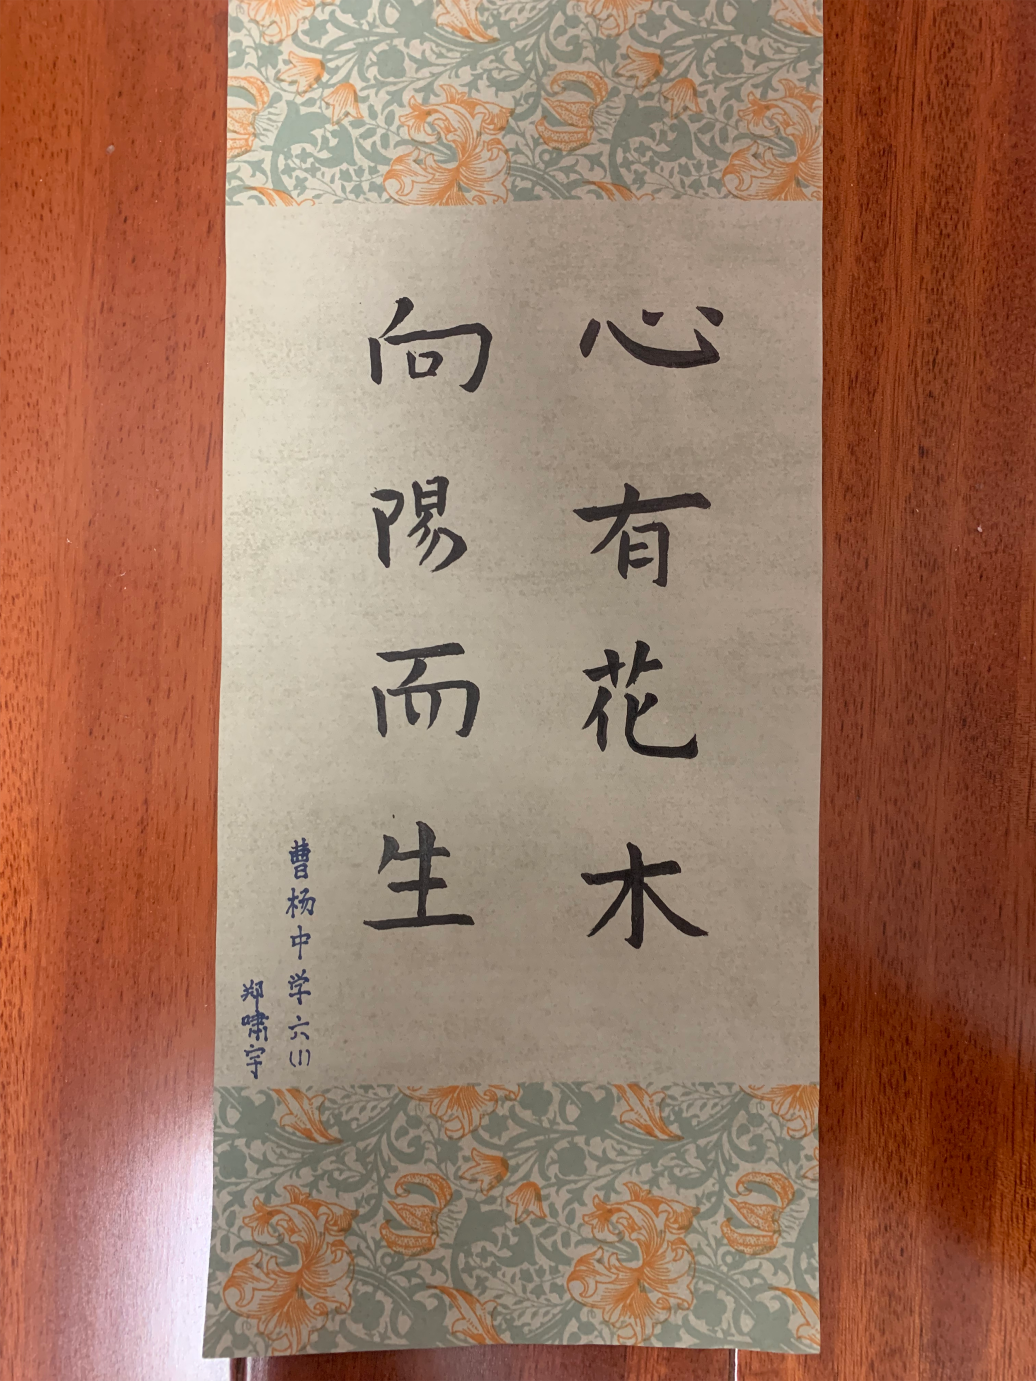 心有花木
向陽而生
曹杨中学六(1)
郑啸宇